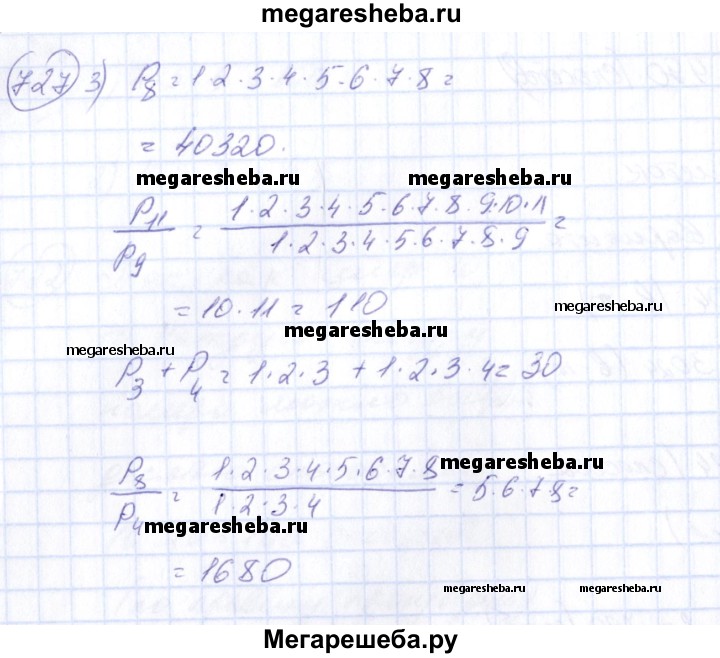 megaresheba.ru
727 3) P₈ = 1·2·3·4·5·6·7·8 =
= 40320.
megaresheba.ru megaresheba.ru
P₁₁/P₉ = 1·2·3·4·5·6·7·8·9·10·11 / 1·2·3·4·5·6·7·8·9 =
= 10·11 = 110
megaresheba.ru
megaresheba.ru
megaresheba.ru
P₃ + P₄ = 1·2·3 + 1·2·3·4 = 30
megaresheba.ru
P₈/P₄ = 1·2·3·4·5·6·7·8 / 1·2·3·4 = 5·6·7·8 =
megaresheba.ru
= 1680
Мегарешеба.ру